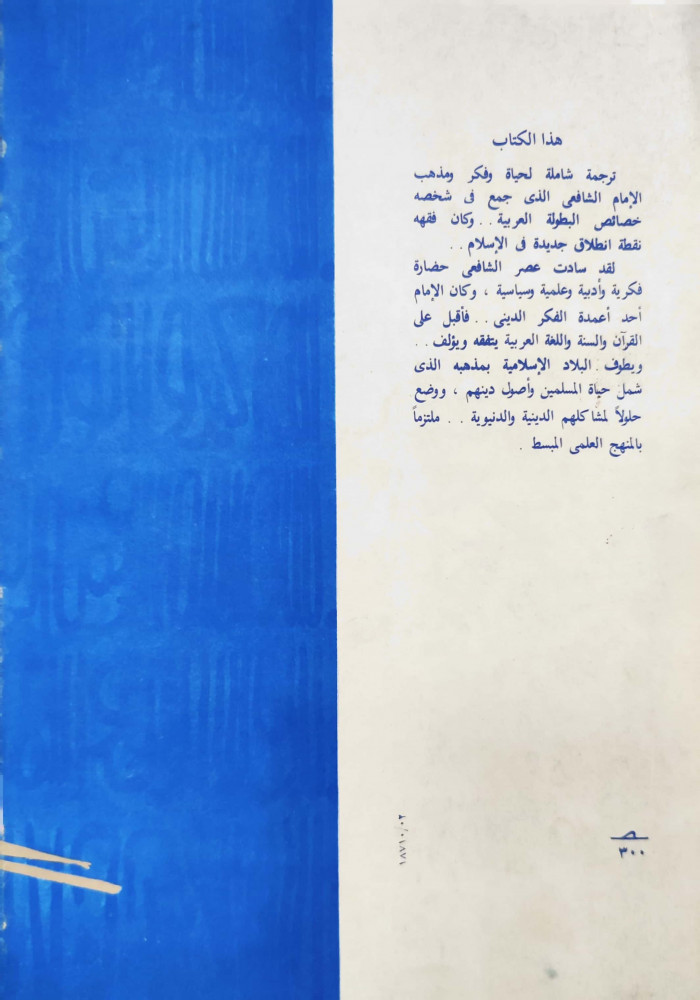 هذا الكتاب
ترجمة شاملة لحياة وفكر ومذهب
الإمام الشافعى الذى جمع فى شخصه
خصائص البطولة العربية . . وكان فقهه
نقطة انطلاق جديدة فى الإسلام . .
لقد سادت عصر الشافعى حضارة
فكرية وأدبية وعلمية وسياسية ، وكان الإمام
أحد أعمدة الفكر الدينى . . فأقبل على
القرآن والسنة واللغة العربية يتفقه ويؤلف . .
ويطوف البلاد الإسلامية بمذهبه الذى
شمل حياة المسلمين وأصول دينهم ، ووضع
حلولاً لمشاكلهم الدينية والدنيوية . . ملتزماً
بالمنهج العلمى المبسط .
١٨٧١٠/٠٢
٣٠٠